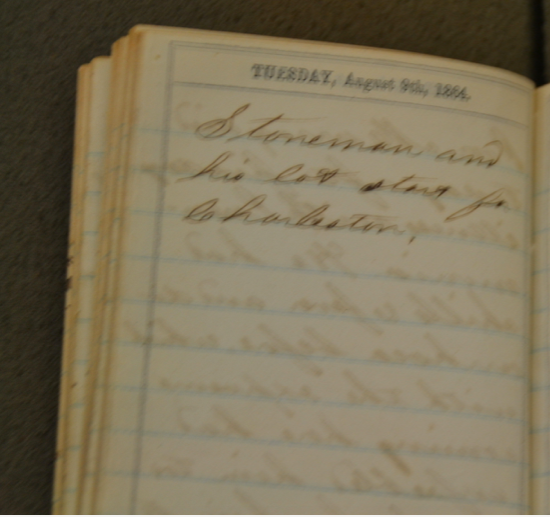 TUESDAY, August 9th, 1864.
Stoneman and
his lot start for
Charleston.